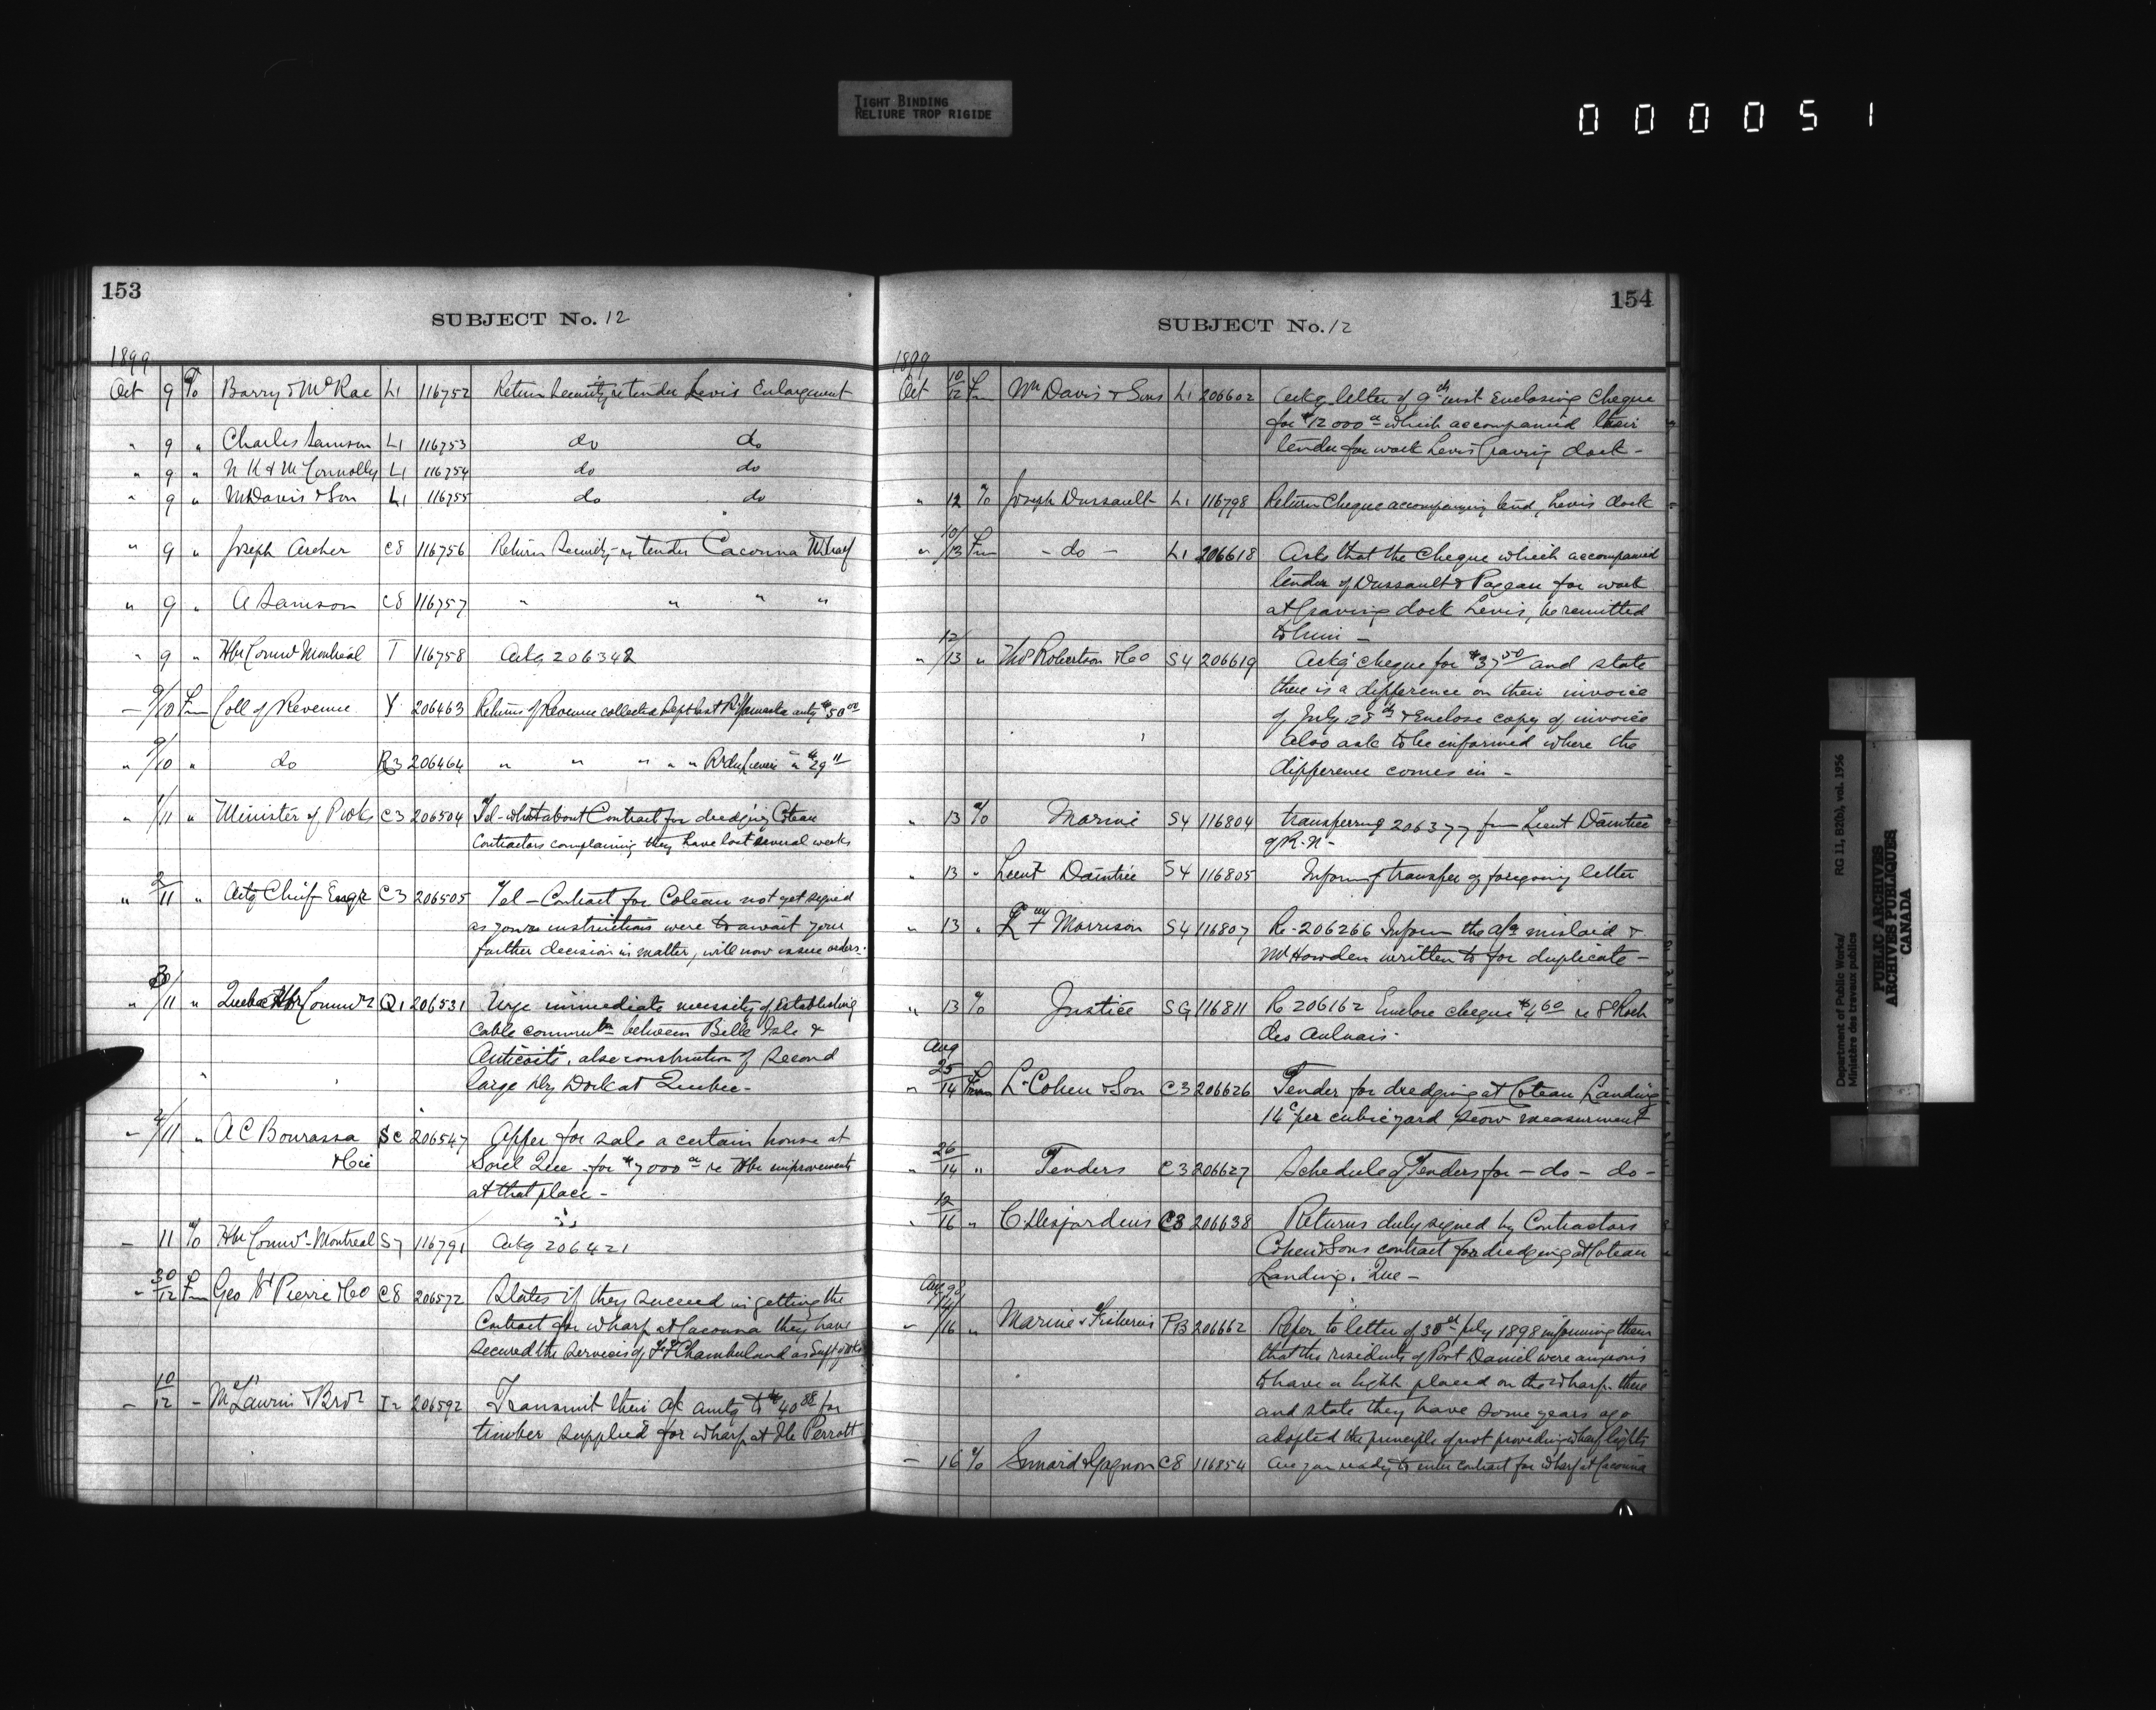 TIGHT BINDING
RELIURE TROP RIGIDE
000051
153
SUBJECT No. 12
1899
Oct 9 To Barry & McRae L1 116752 Return security re tender Levis Enlargement
" 9 " Charles Samson L1 116753 do do
" 9 " N K & M Connolly L1 116754 do do
" 9 " M Davis & Son L1 116755 do do
" 9 " Joseph Archer C8 116756 Return Security re tender Cacouna Wharf
" 9 " A Samson C8 116757 " " " "
" 9 " Hbr Comrs Montreal T 116758 Ackg 206342
" 9/10 Fm Coll of Revenue Y 206463 Returns of Revenue collected Sept last R. Yamaska amtg $50 00
" 9/10 " do R3 206464 " " " " " " $29 11
" 1/11 " Minister of P Wks C3 206504 Tel - what about Contract for dredging Coteau
Contractors complaining they have lost several weeks
" 2/11 " Actg Chief Engr C3 206505 Tel - Contract for Coteau not yet signed
as your instructions were to await your
further decision in matter, will now issue orders.
" 30/11 " Quebec Hbr Commrs Q1 206531 Urge immediate necessity of Establishing
cable commun between Belle Isle &
Anticosti, also construction of second
large Dry Dock at Quebec -
" 2/11 " A C Bourassa SC 206547 Offer for sale a certain house at
& Cie Sorel Que for $7000 re Hbr improvements
at that place -
" 11 To Hbr Comrs - Montreal S7 116791 Ackg 206421
" 30/12 Fm Geo St Pierre & Co C8 206572 States if they succeed in getting the
Contract for wharf at Cacouna they have
secured the services of Chamberland as Supt of Wks
" 10/12 " McLaurin & Bros I2 206592 Transmit their a/c amtg to $40 88 for
timber supplied for wharf at Ile Perrott
154
SUBJECT No. 12
1899
Oct 10/12 Fm Wm Davis & Sons L1 206602 Ackg letter of 9th inst Enclosing Cheque
for $12000 which accompanied their
tender for work Levis Graving dock -
" 12 To Joseph Dussault L1 116798 Return Cheque accompanying tend, Levis dock
" 10/13 Fm - do - L1 206618 Asks that the Cheque which accompanied
tender of Dussault & Pageau for work
at Graving dock Levis, be remitted
to him -
" 12/13 " Thos Robertson & Co S4 206619 Ackg cheque for $37 50 and state
there is a difference on their invoice
of July 28th & Enclose copy of invoice
Also ask to be informed where the
difference comes in -
" 13 To Marine S4 116804 transferring 206377 from Lieut Daintree
of R.N -
" 13 " Lieut Daintree S4 116805 Inform of transfer of foregoing letter
" 13 " Morrison S4 116807 Re - 206266 Inform the a/c mislaid &
Mr Howden written to for duplicate -
" 13 To Justice SG 116811 Re 206162 Enclose cheque $4 60 re St Roch
des Aulnais.
Aug
" 25/14 From L. Cohen & Son C3 206626 Tender for dredging at Coteau Landing
14c per cubic yard scow measurement
" 26/14 " Tenders C3 206627 Schedule of Tenders for - do - do -
" 12/16 " C. Desjardins C3 206638 Returns duly signed by Contractors
Cohen & Sons contract for dredging at Coteau
Landing. Que -
Aug 98
" 14/16 " Marine & Fisheries PB 206662 Refer to letter of 30th July 1898 informing them
that the residents of Port Daniel were anxious
to have a light placed on the wharf there
and state they have some years ago
adopted the principle of not providing wharf lights
- 16 To Simard & Gagnon C8 116854 Are you ready to enter contract for wharf at Cacouna
Department of Public Works/ RG 11, B2(b), vol. 1956
Ministère des travaux publics
PUBLIC ARCHIVES
ARCHIVES PUBLIQUES
CANADA